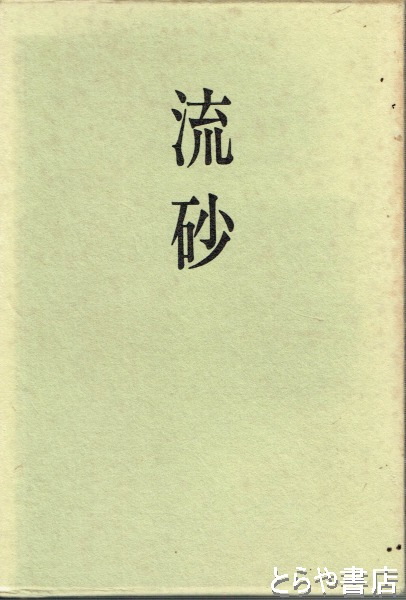 流砂
とらや書店